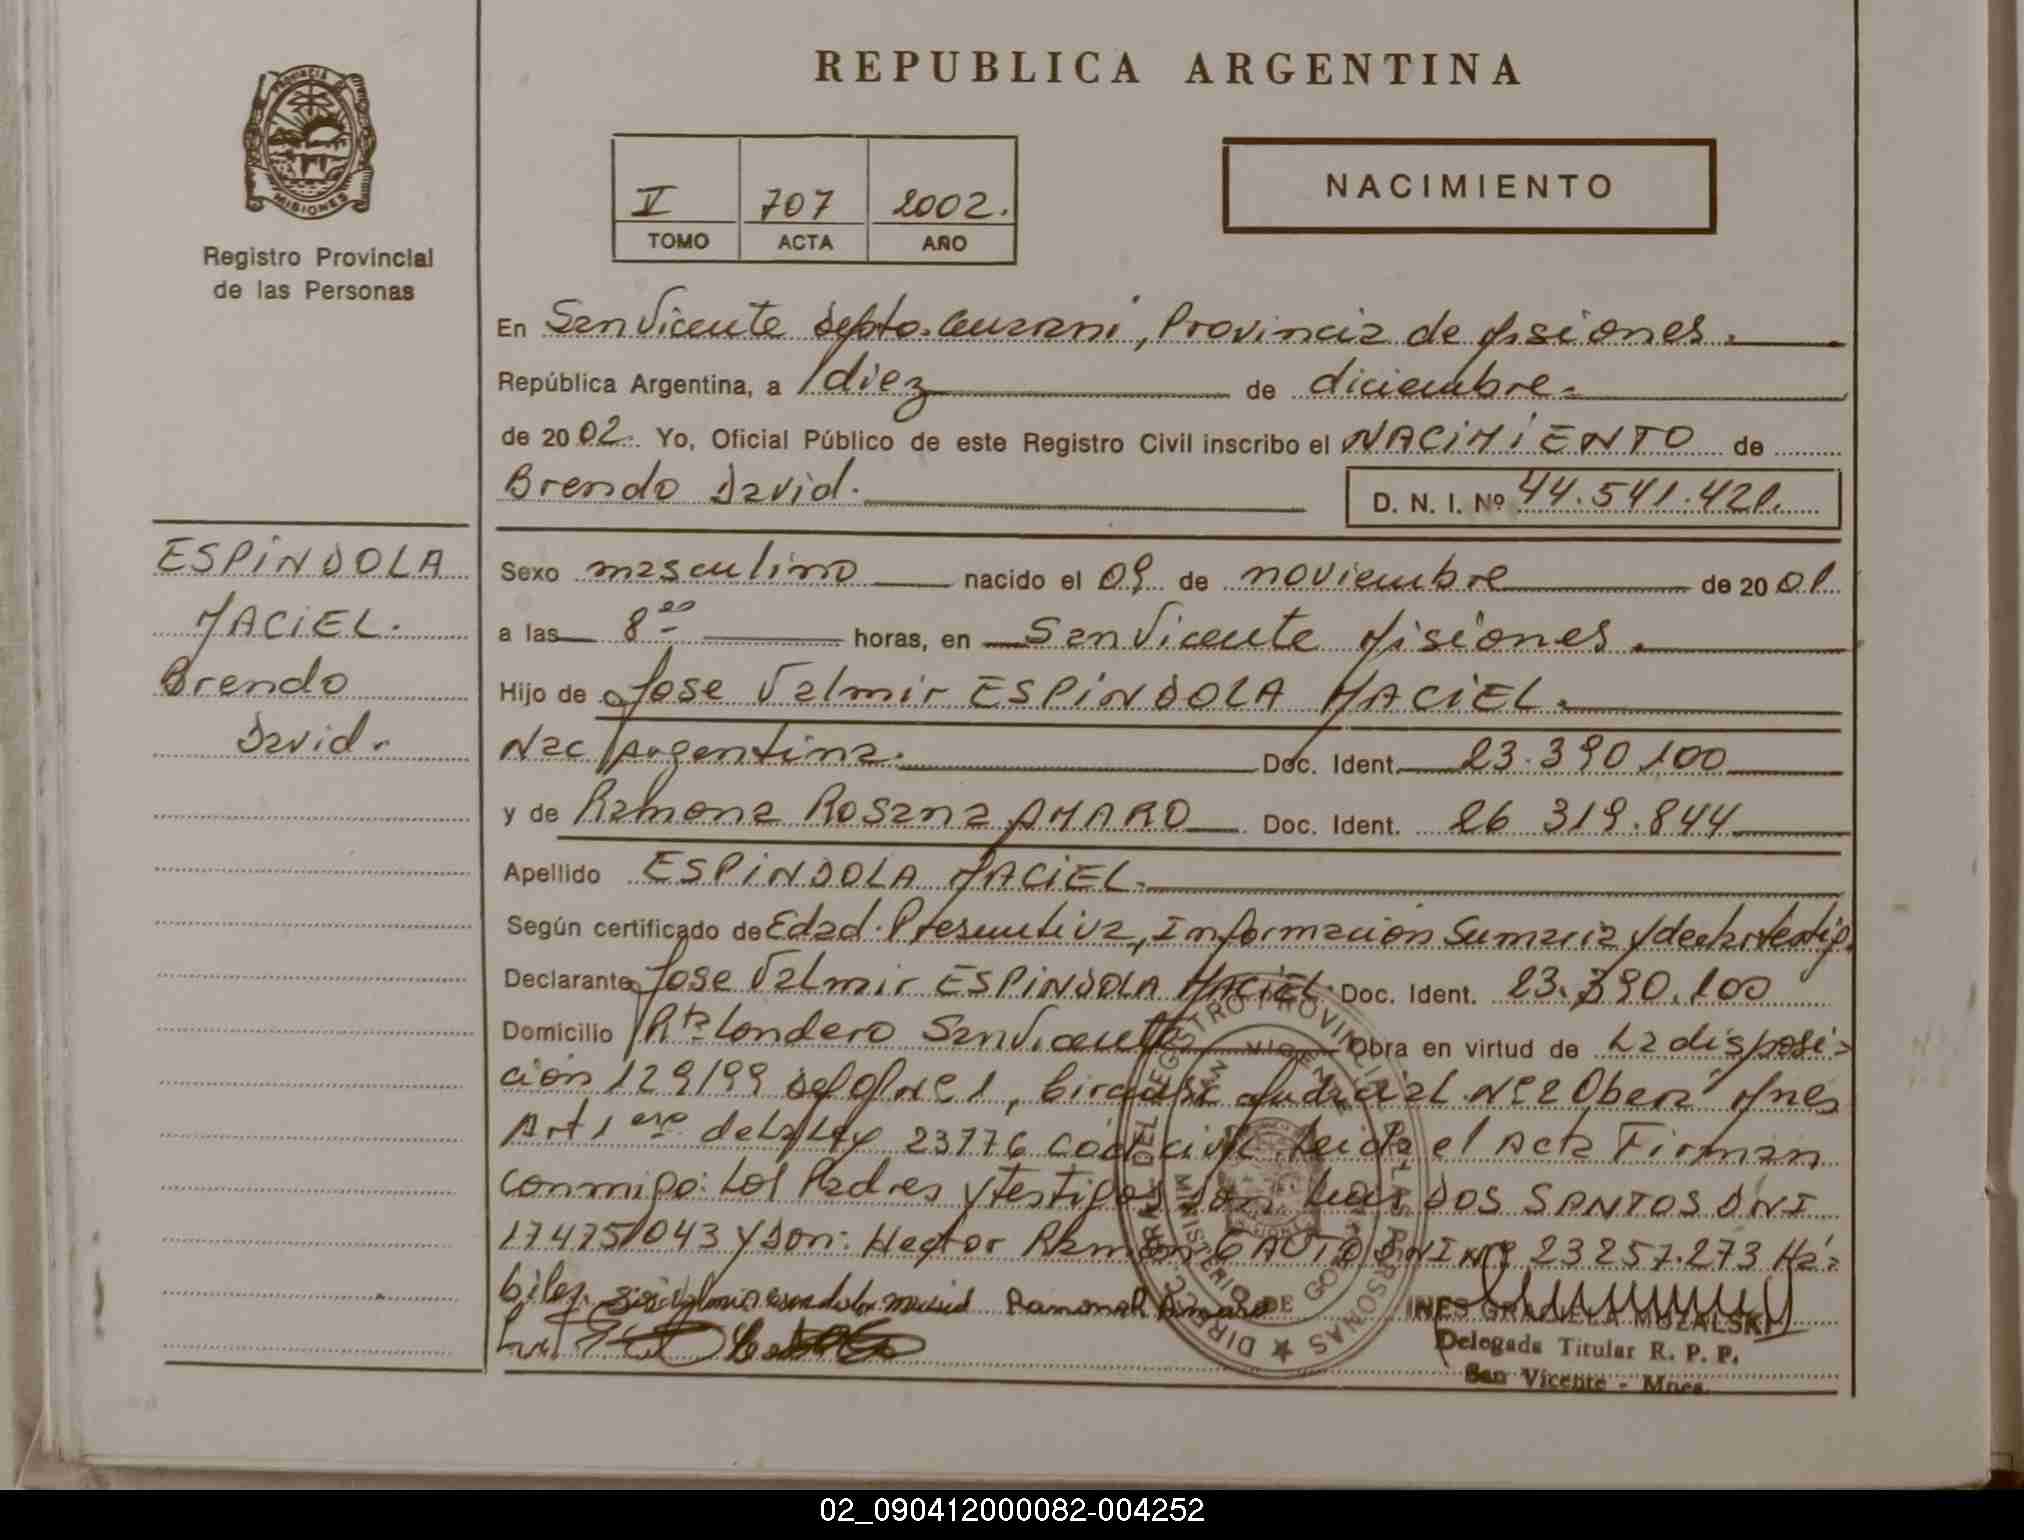 REPUBLICA ARGENTINA
PROVINCIA DE MISIONES
Registro Provincial
de las Personas
V 707 2002.
TOMO ACTA AÑO
NACIMIENTO
En San Vicente Depto. Guarani, Provincia de Misiones.
República Argentina, a diez de diciembre
de 2002. Yo, Oficial Público de este Registro Civil inscribo el NACIMIENTO de
Brendo David. D. N. I. Nº 44.541.421.
ESPINDOLA
MACIEL.
Brendo
David.
Sexo masculino nacido el 09 de noviembre de 2001
a las 8 00 horas, en San Vicente Misiones.
Hijo de Jose Valmir ESPINDOLA MACIEL.
Nac Argentina. Doc. Ident. 23.390.100
y de Ramona Rosana AMARO Doc. Ident. 26 319.844
Apellido ESPINDOLA MACIEL.
Según certificado de Edad Presuntiva, Información Sumaria y
Declarante Jose Valmir ESPINDOLA MACIEL. Doc. Ident. 23.390.100
Domicilio Londero San Vicente Obra en virtud de La disposi-
ción 129/99 del Judicial Nº 2 Obera Mnes
Art 1 ero de la Ley 23776 Cod. civil. Leida el Acta Firman
conmigo: Los Padres y testigos Don: Luis DOS SANTOS DNI
17475043 y Don: Hector Ramon GAUTO DNI Nº 23257.273 Há-
biles. Ramona R Amaro
INES GRACIELA MOZALSKI
Delegada Titular R. P. P.
San Vicente - Mnes.
DIREC. GRAL. DEL REGISTRO PROVINCIAL DE LAS PERSONAS
SAN VICENTE
MINISTERIO DE GOB.
02_090412000082-004252